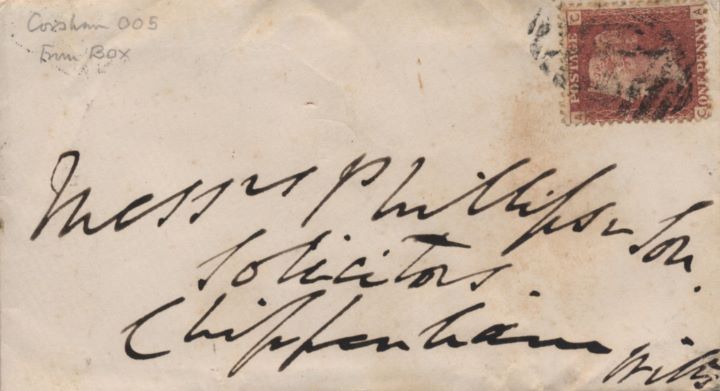 Corsham 005
Enn Box
C A
POSTAGE ONE PENNY
A C
Messrs Phillips & Son
Solicitors
Chippenham
Wilts